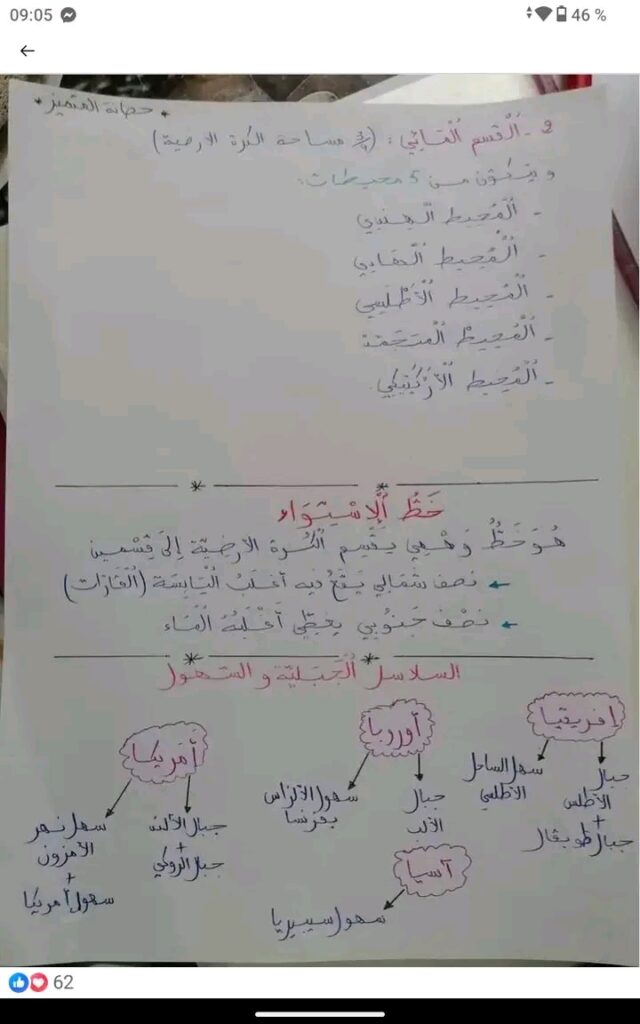 09:05
46 %
* حصانة المتميز *
2 - اَلْقسم اَلْمَائِي : (3/4 مساحة الكرة الارضية)
و يتكون من 5 محيطات:
- اَلْمُحيط الهندي
- اَلْمُحيط اَلْهَادِي
- اَلْمُحيط اَلْأَطْلَسِي
- اَلْمُحيط المتجمد
- اَلْمُحيط الْأَرْكْتِيكِي
خَطُّ اَلْإِسْتِوَاء
هُوَ خَطٌّ وَهْمِي يُقَسِم الْكُرة الارضية إِلَى قِسْمين
← نصف شَمَالي يَقَعُ فيه أغلب اليَابِسَة (اَلْقَارَات)
← نِصْف جَنُوبِي يغطي أَغْلَبُهُ اَلْمَاء
السلاسل اَلْجَبَلِيَّة و السهول
إفريقيا
أوروبا
أمريكا
جبال الأطلس + جبال طوبقال
سهل الساحل الأطلسي
جبال الألب
سهول الألزاس بفرنسا
جبال الأند + جبال الروكي
سهل نهر الأمزون + سهول أمريكا
آسيا
سهول سيبيريا
62